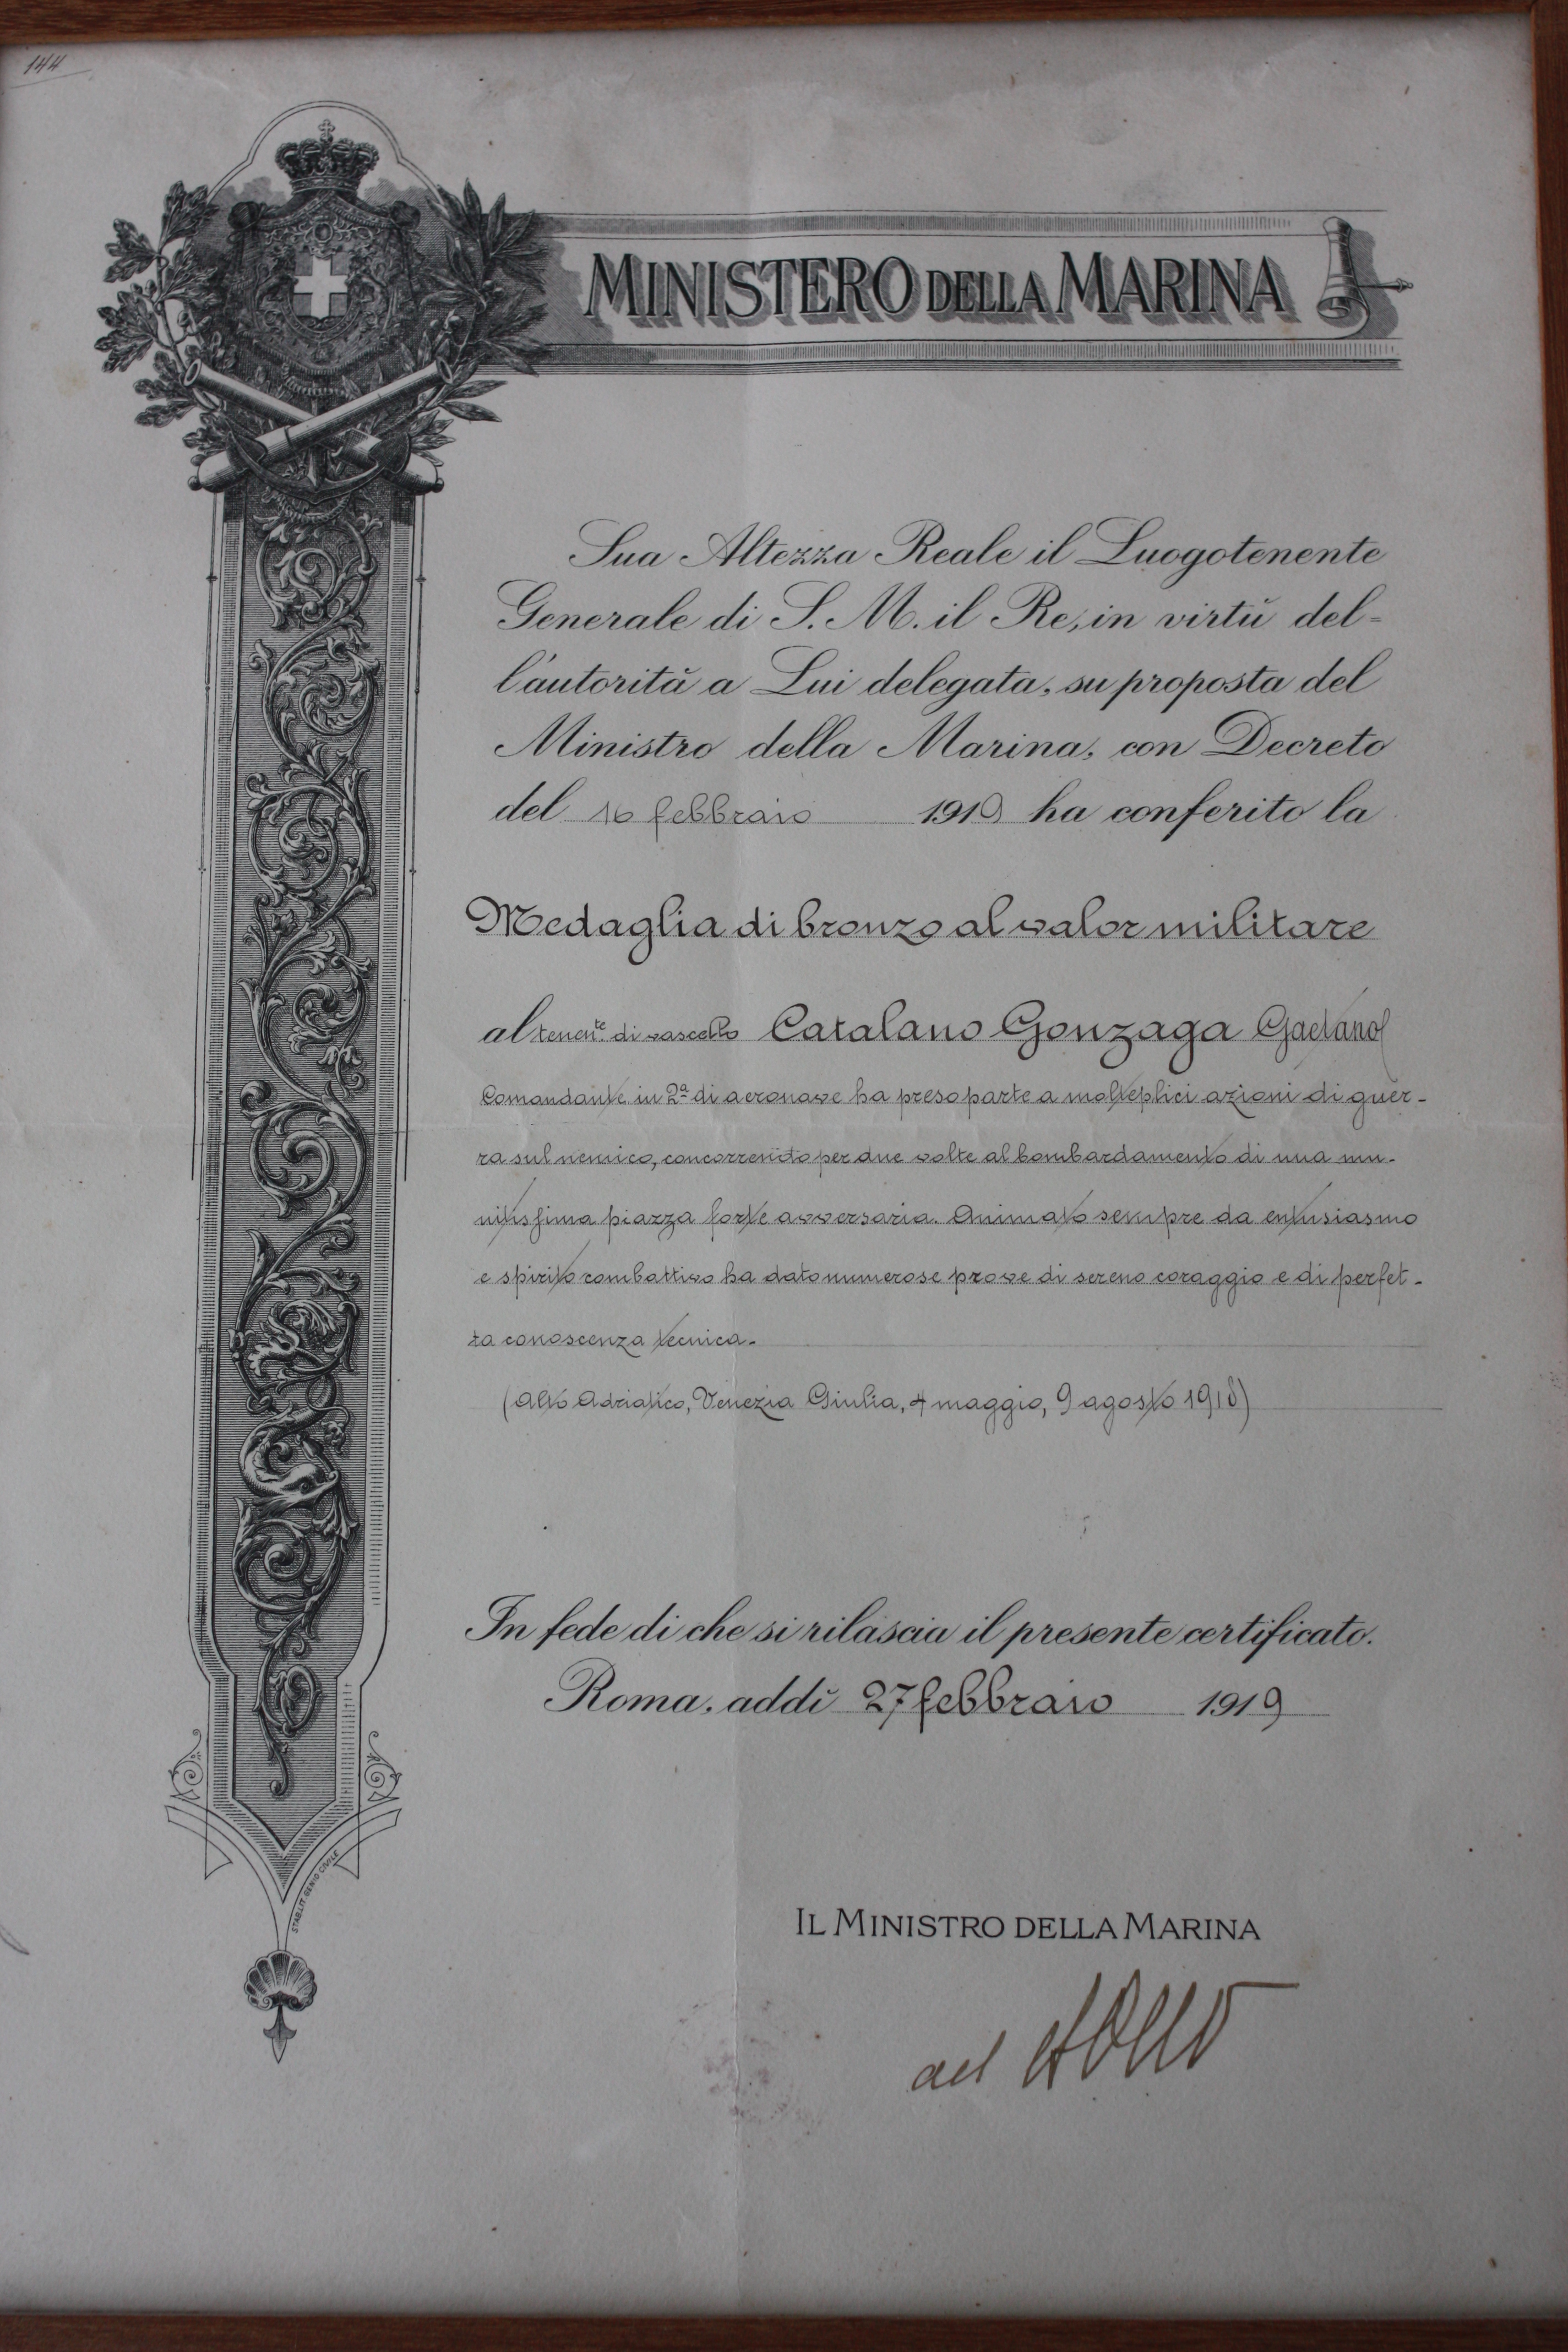 144
MINISTERO DELLA MARINA
Sua Altezza Reale il Luogotenente
Generale di S. M. il Re, in virtù del=
l'autorità a Lui delegata, su proposta del
Ministro della Marina, con Decreto
del 16 febbraio 1919 ha conferito la
Medaglia di bronzo al valor militare
al tenen.te di vascello Catalano Gonzaga Gaetano
Comandante in 2ª di aeronave ha preso parte a molteplici azioni di guer-
ra sul nemico, concorrendo per due volte al bombardamento di una mu-
nitissima piazza forte avversaria. Animato sempre da entusiasmo
e spirito combattivo ha dato numerose prove di sereno coraggio e di perfet-
ta conoscenza tecnica.
(Alto Adriatico, Venezia Giulia, 4 maggio, 9 agosto 1918)
In fede di che si rilascia il presente certificato.
Roma, addì 27 febbraio 1919
STAB. LIT. GENIO CIVILE
IL MINISTRO DELLA MARINA